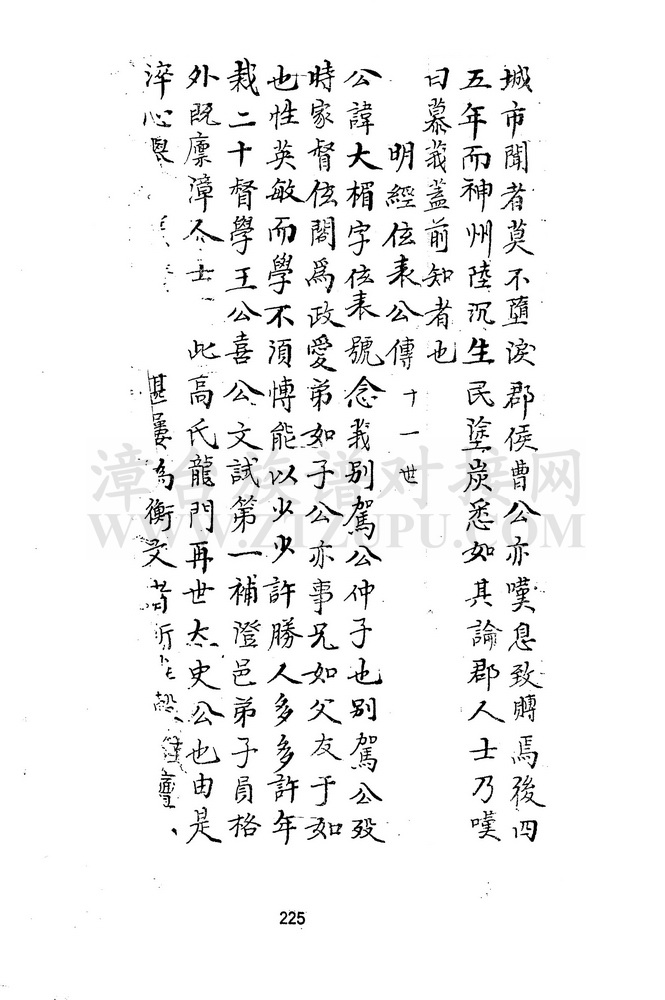 城市聞者莫不墮淚郡侯曹公亦嘆息致賻焉後四
五年而神州陸沉生民塗炭悉如其論郡人士乃嘆
曰慕莪蓋前知者也
明經位表公傳 十一世
公諱大楣字位表號念莪別駕公仲子也別駕公歿
時家督位閣為政愛弟如子公亦事兄如父友于如
也性英敏而學不須博能以少少許勝人多多許年
栽二十督學王公喜公文試第一補澄邑弟子員格
外既廩漳人士 此高氏龍門再世太史公也由是
淬心 甚屢為衡文者所
漳台族譜对接网
WWW.ZTZUPU.COM
225